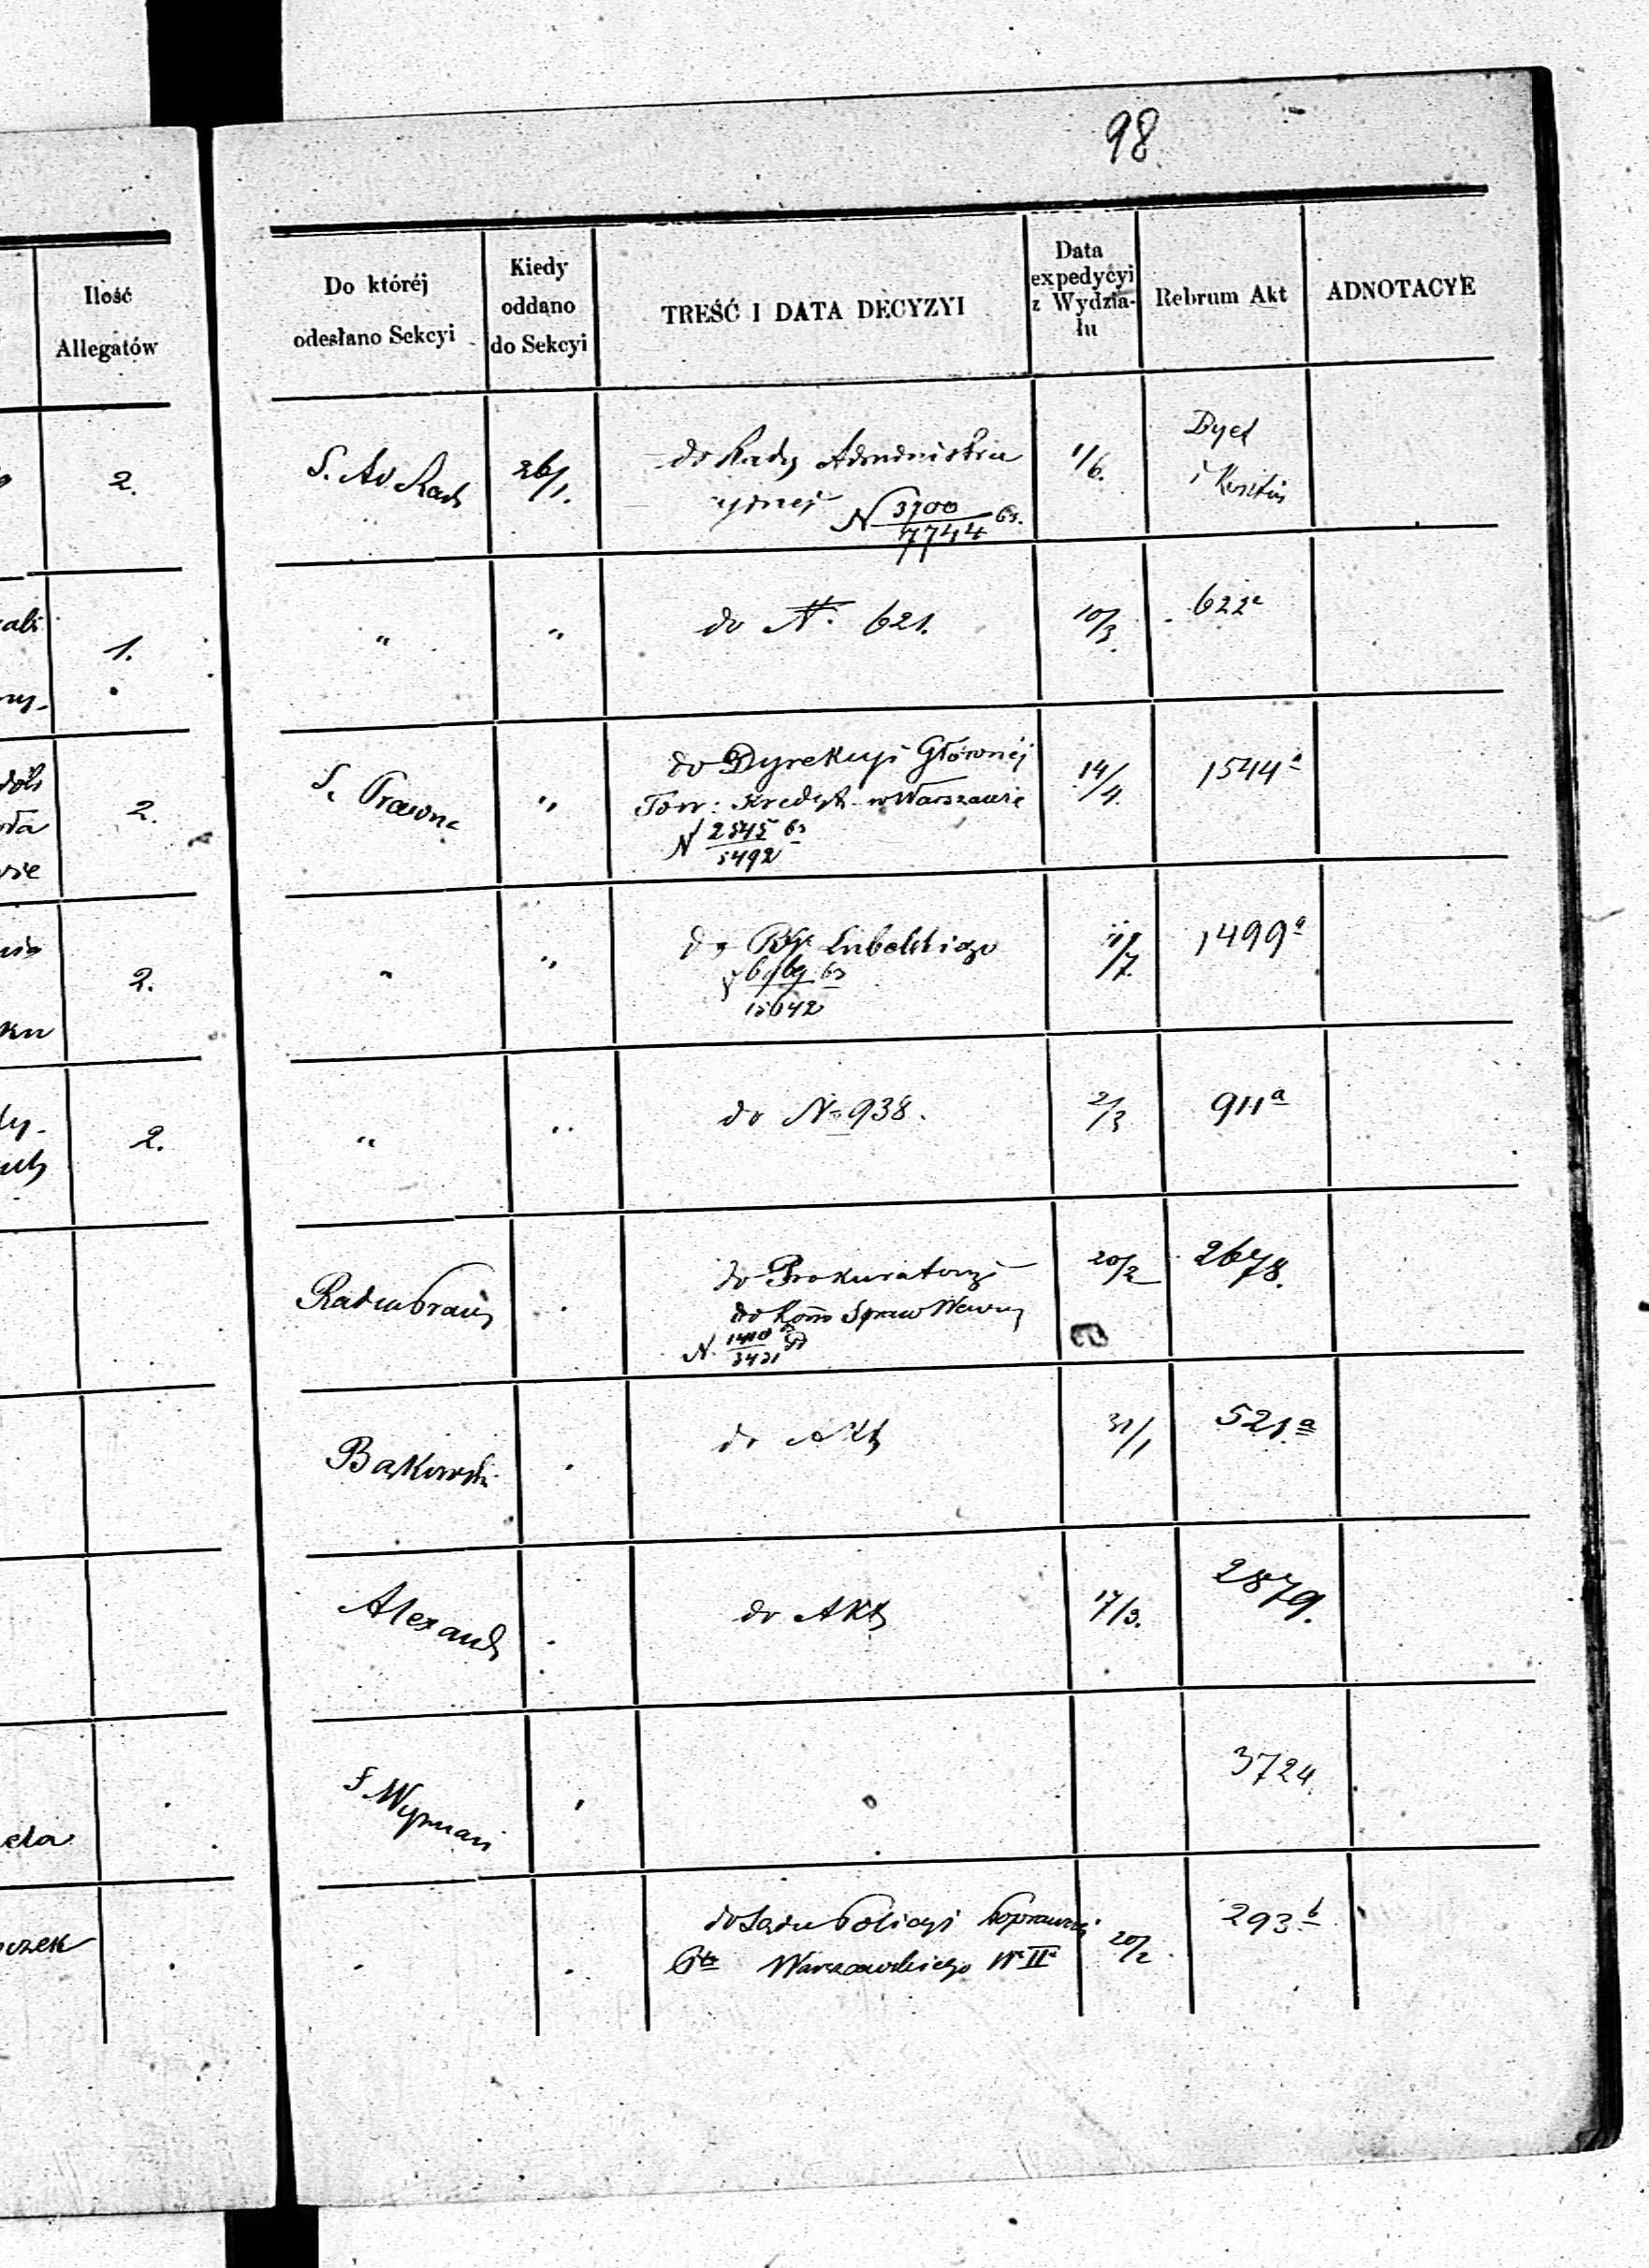 98.
Ilość
Allegatów
Do któréj
odesłano Sekcyi
Kiedy
oddano
do Sekcyi
TREŚĆ I DATA DECYZYI
Data
expedycyi
z Wydzia-
łu
Rebrum Akt
ADNOTACYE
2.
S. Ad Rad
26/1.
do Rady Administra
cyjnej N 3700/7744 63.
1/6.
1.
"
"
do N. 621.
10/3.
622a
2.
S. Prawna
"
do Dyrekcyi Głównéj
Tow: Kredyt. w Warszawie
N 2545/5492 63
14/4.
1544a
2.
"
"
Lubelskiego
15642
1499a
2.
"
"
do No 938.
2/3
911a
do Prokuratoryi
do Kom Spraw Wewn
N.
20/2
2678.
Bąkowski
do Akt
31/1
521.a
Alexand
do Akt
17/3.
2879.
S
3724
do Sądu Policyi Poprawczej
Warszawskiego W. II
20/2
293b